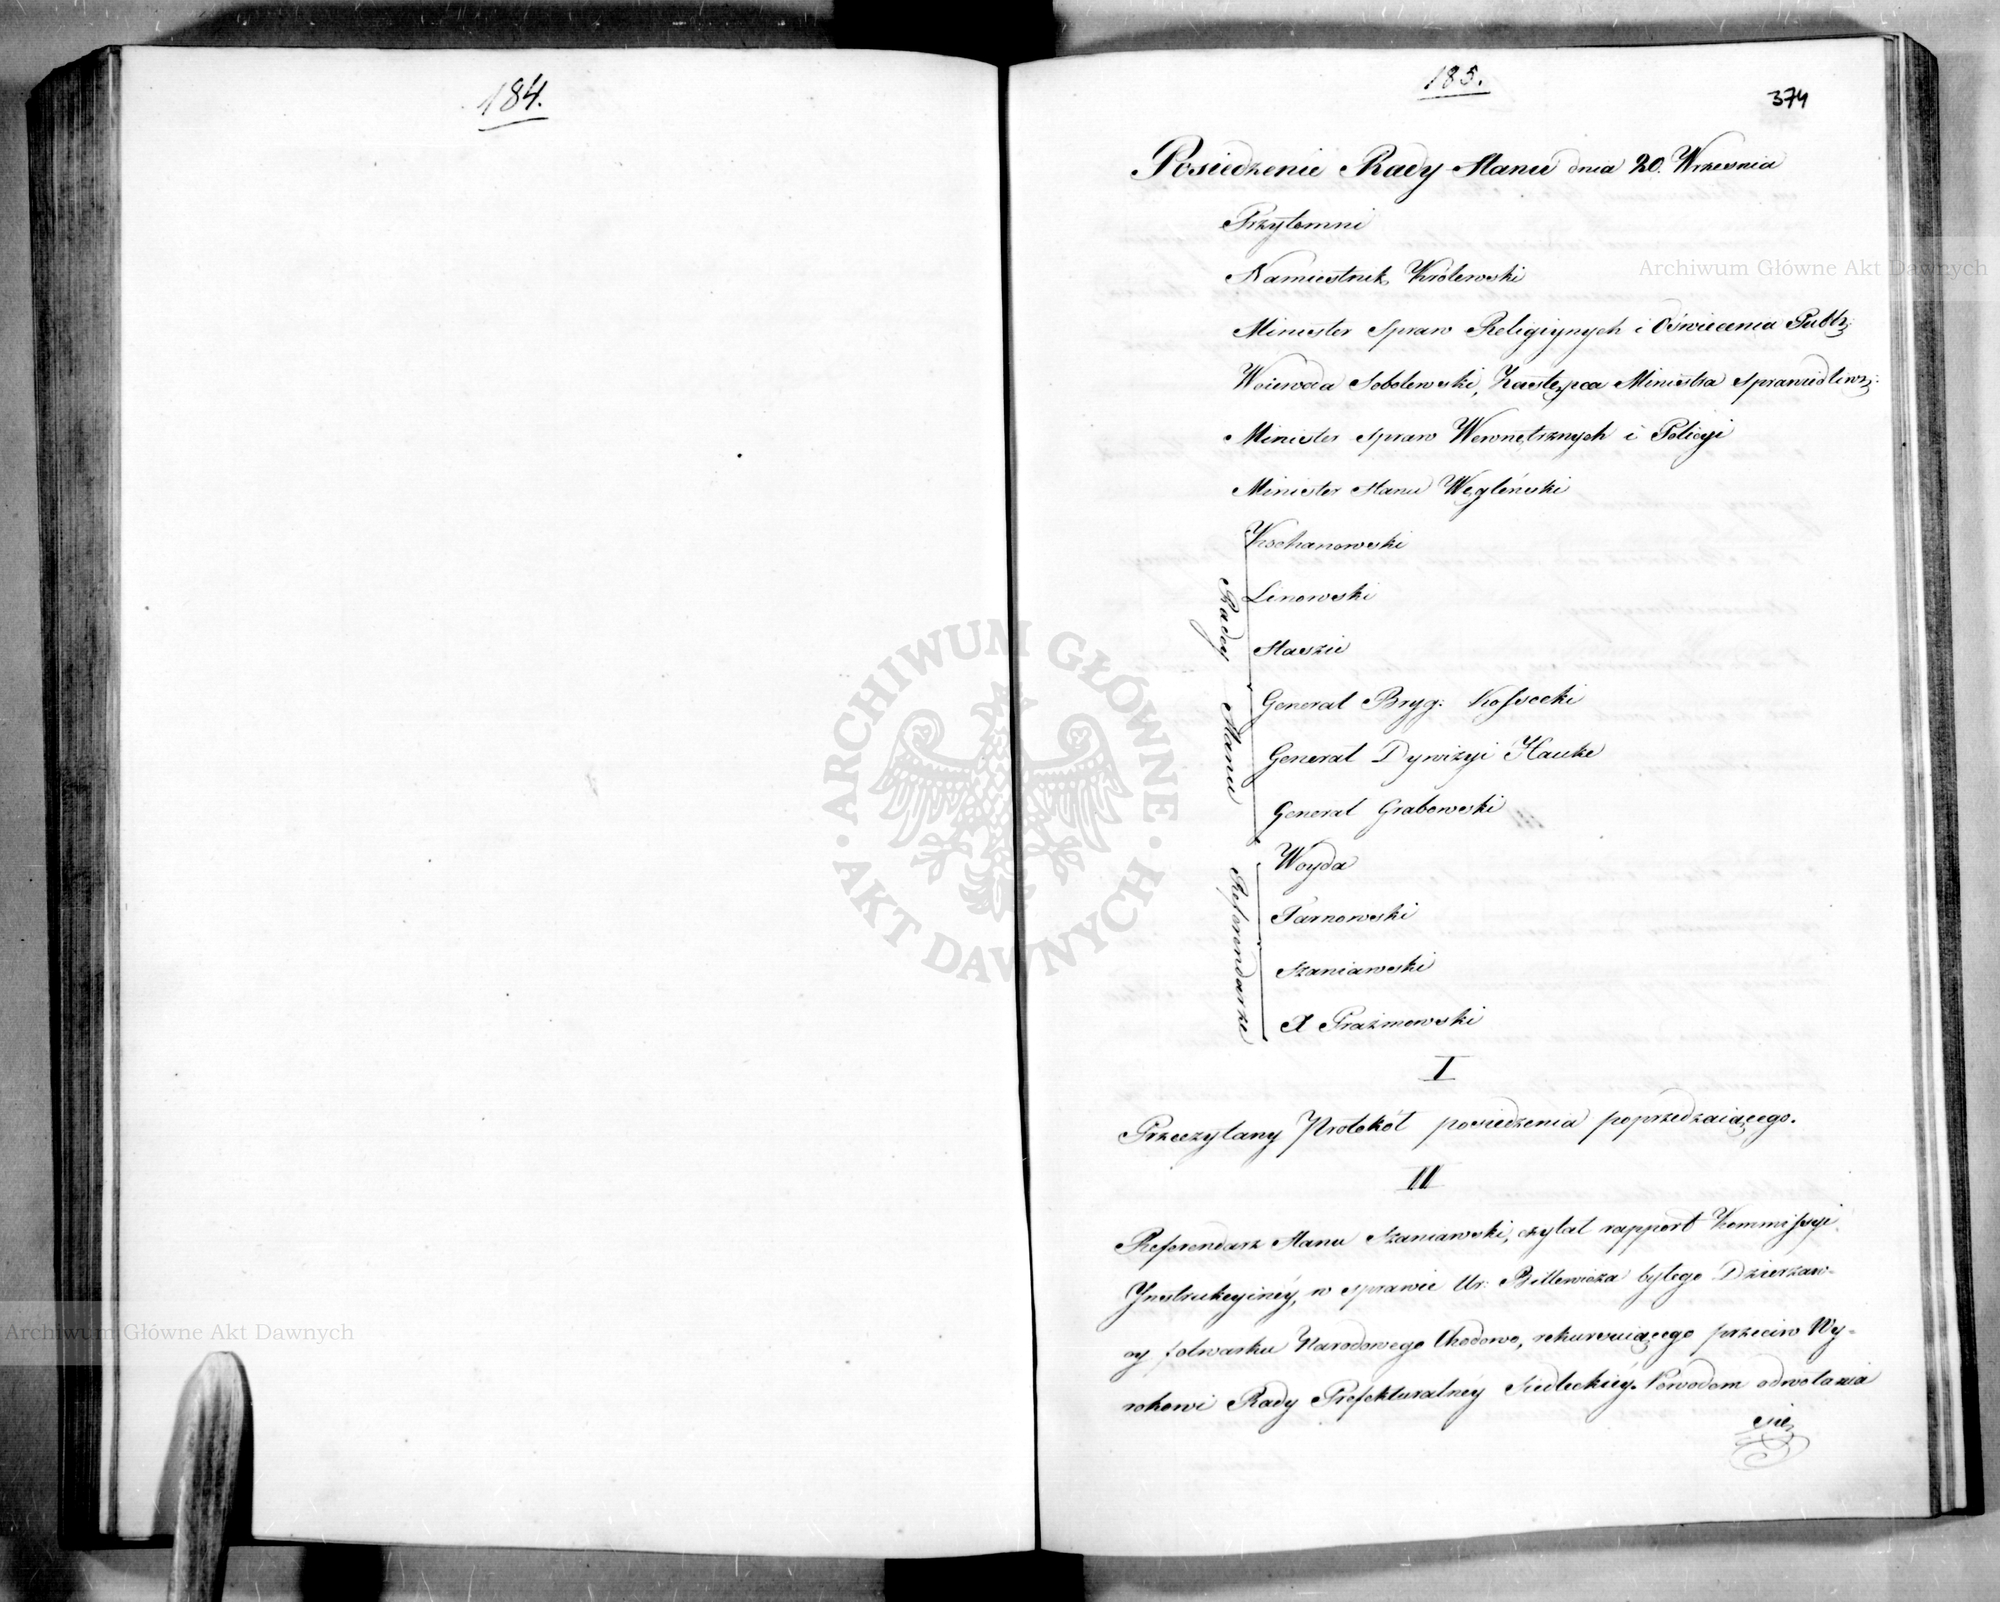 184.
185.
374
Posiedzenie Rady Stanu dnia 20. Wrzesnia
Przytomni
Namiestnik Królewski
Minister Spraw Religiynych i Oświecenia Publ:
Woiewoda Sobolewski, Zastępca Ministra Sprawiedliw:
Minister Spraw Wewnętrznych i Policyi
Minister Stanu Węgleński
Radcy Stanu
Kochanowski
Linowski
Staszic
Generał Bryg: Kossecki
Generał Dywizyi Hauke
Generał Grabowski
Referendarze
Woyda
Tarnowski
Szaniawski
X Prażmowski
I
Przeczytany Protokół posiedzenia poprzedzaiącego.
II
Referendarz Stanu Szaniawski, czytał rapport Kommissyi
Ynstrukcyinéy, w sprawie Ur: Billewicza byłego Dzierżaw-
cy folwarku Narodowego Chodowo, rekuruiącego przeciw Wy-
rokowi Rady Prefekturalnéy Siedleckiéy. Powodem odwołania
się
Archiwum Główne Akt Dawnych
ARCHIWUM GŁÓWNE
AKT DAWNYCH
Archiwum Główne Akt Dawnych